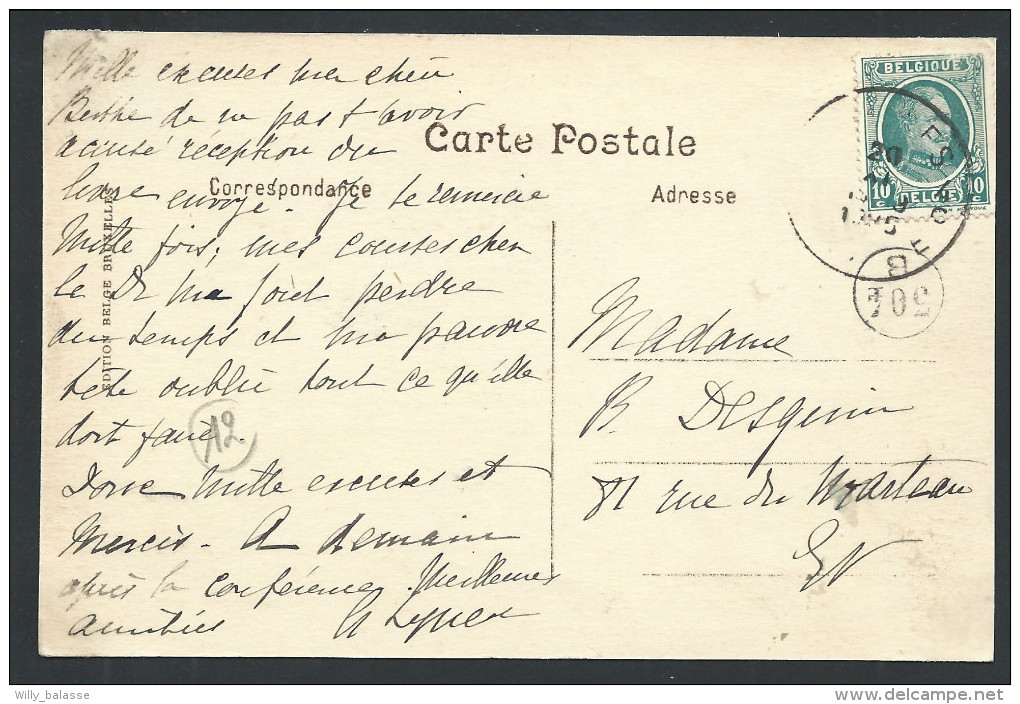 Mille excuses ma chère
Berthe de ne pas t'avoir
accusé réception du
livre envoyé. Je te remercie
Mille fois, mes courses chez
le Dr me font perdre
du temps et ma pauvre
tête oublie tout ce qu'elle
doit faire.
Donc Mille excuses et
Mercis. A demain
après la conférence. Meilleures
amitiés
Carte Postale
Correspondance
Adresse
EDITION BELGE BRUXELLES
12
BELGIQUE
10 10
BELGIË
20
B
304
Madame
B. Desguin
81 rue du Marteau
EV
Willy_balasse
delcampe.net